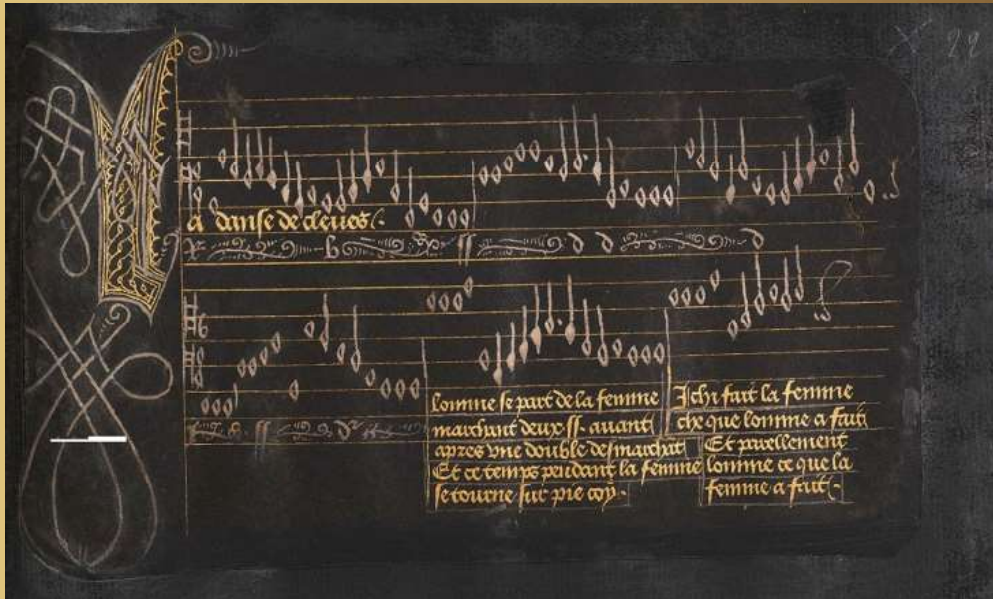 22
La danse de cleves
R b ss d d d
r d ss d r
lomme se part de la femme
marchant deux ss. auant
apres vne double desmarchat
Et ce temps pendant la femme
se tourne sur pie coy.
Ichi fait la femme
che que lomme a fait
Et parellement
lomme ce que la
femme a fait